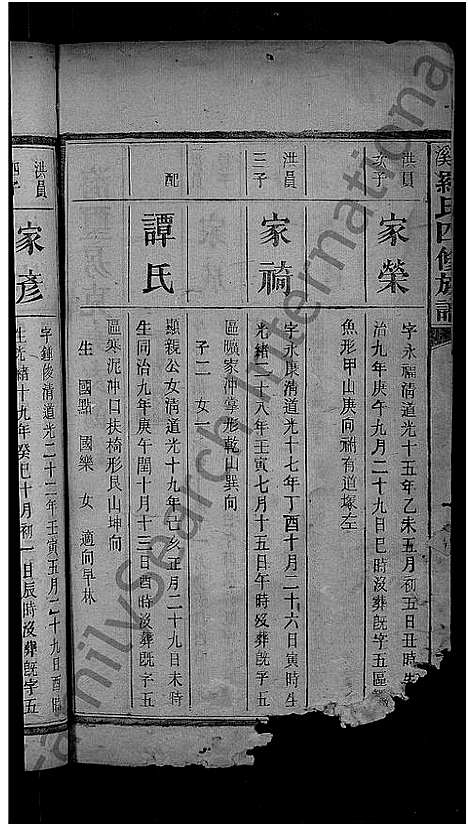 溪羅氏四修族譜
洪員
次子
家榮
字永福清道光十五年乙未五月初五日丑時生
治九年庚午九月二十九日巳時沒葬旣字五區
魚形甲山庚向祔有道塚左
洪員
三子
家禱
字永康清道光十七年丁酉十月二十六日寅時生
光緒二十八年壬寅七月十五日午時沒葬旣字五
區曠家冲掌形乾山巽向
子二 女一
配
譚氏
顯親公女清道光十九年己亥正月二十九日未時
生同治九年庚午閏十月十三日酉時沒葬旣字五
區寒泥冲口扶椅形艮山坤向
生 國點 國樂 女 適向早林
洪員
四子
家彥
字鍾俊清道光二十二年壬寅五月二十九日酉時
生光緒十九年癸巳十月初一日辰時沒葬旣字五
FamilySearch International